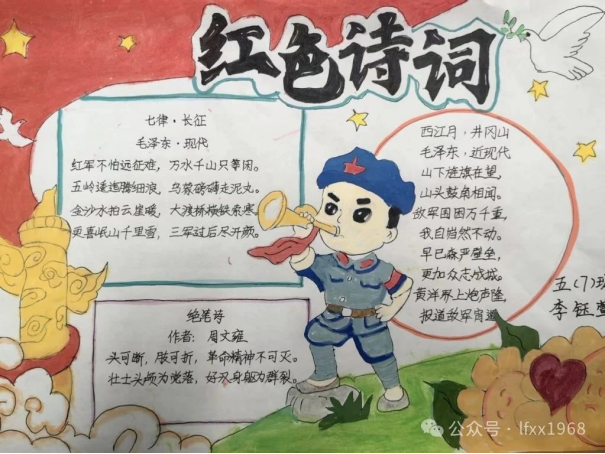 红色诗词
七律·长征
毛泽东·现代
红军不怕远征难,万水千山只等闲。
五岭逶迤腾细浪,乌蒙磅礴走泥丸。
金沙水拍云崖暖,大渡桥横铁索寒。
更喜岷山千里雪,三军过后尽开颜。
绝笔诗
作者:周文雍
头可断,肢可折,革命精神不可灭。
壮士头颅为党落,好汉身躯为群裂。
西江月·井冈山
毛泽东·近现代
山下旌旗在望,
山头鼓角相闻。
敌军围困万千重,
我自岿然不动。
早已森严壁垒,
更加众志成城。
黄洋界上炮声隆,
报道敌军宵遁
五(7)班
李钰
公众号·lfxx1968